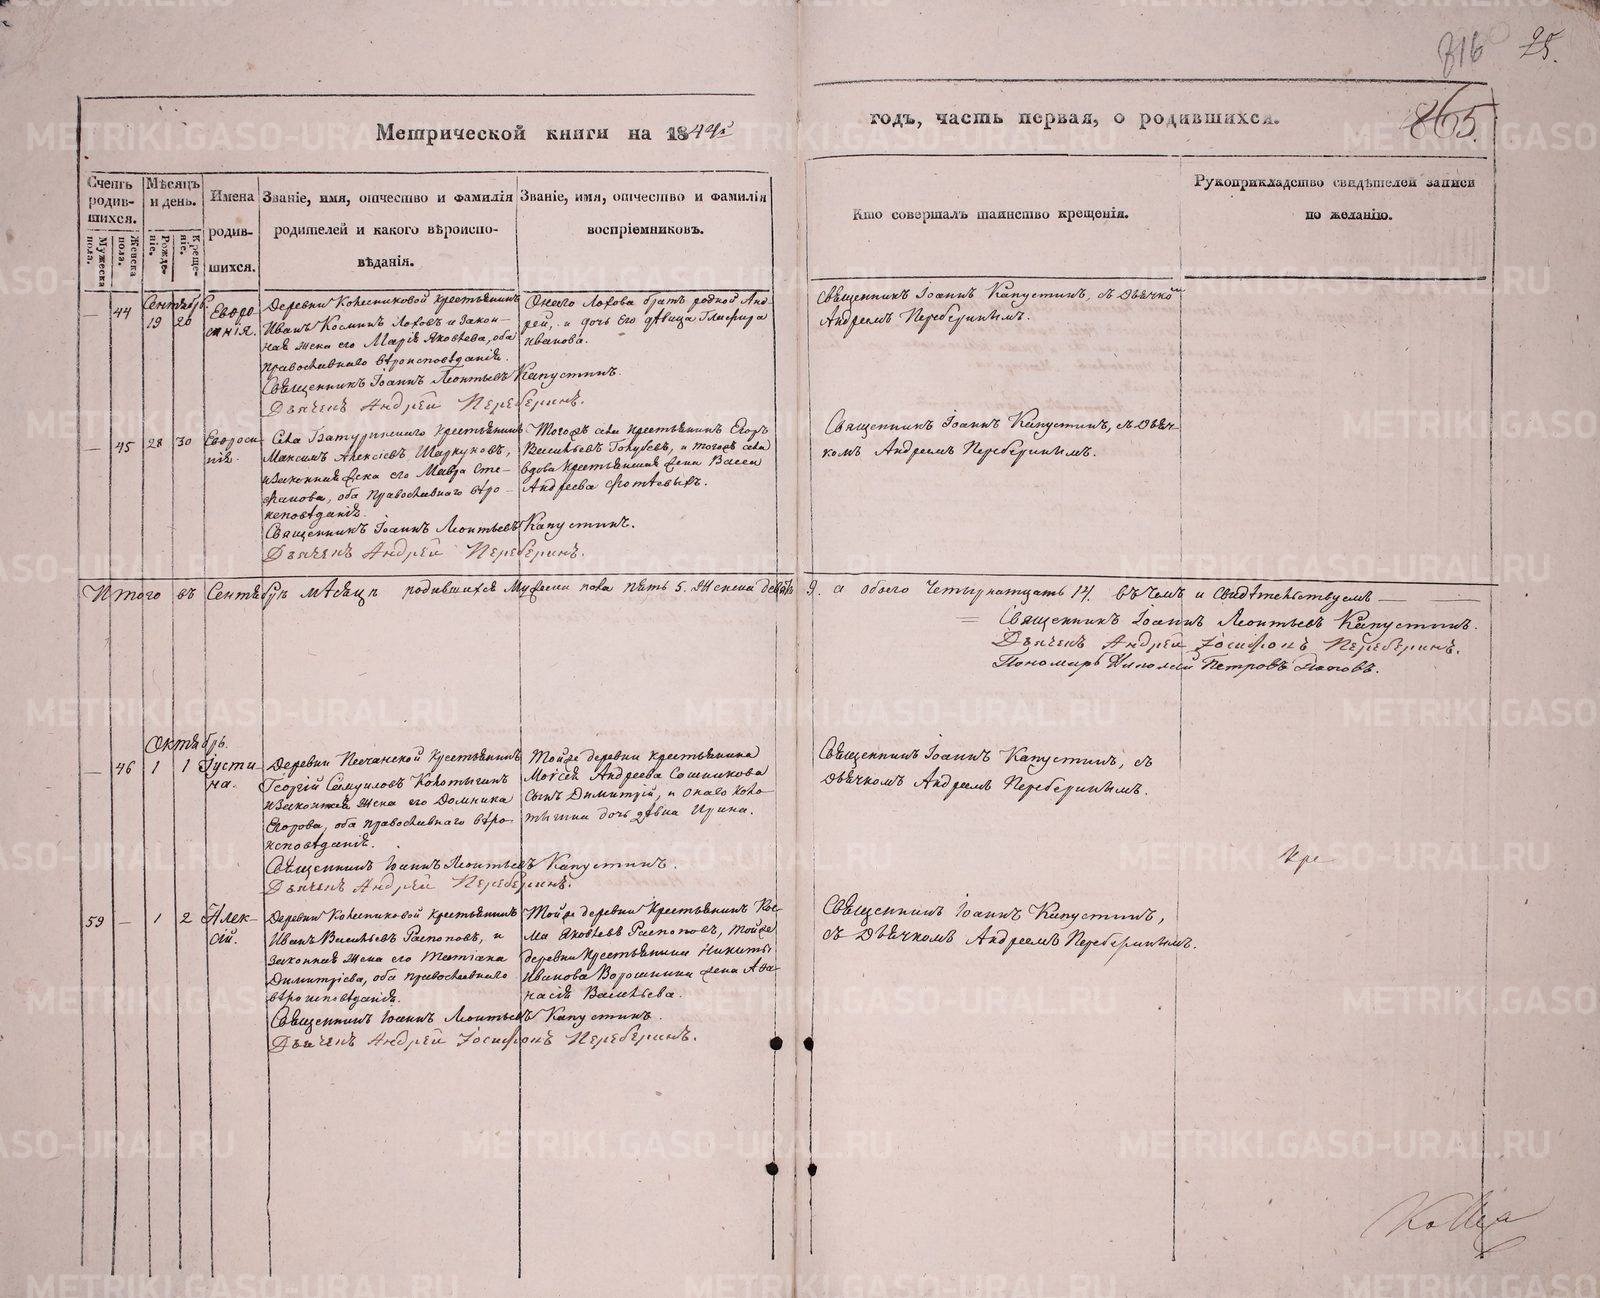 816 25.
865.
Метрической книги на 1844й
годъ, часть первая, о родившихся.
Счетъ родив-шихся.
Мужеска пола.
Женска пола.
Мѣсяцъ и день.
Рожде-ніе.
Креще-ніе.
Имена родив-шихся.
Званіе, имя, отчество и фамилія
родителей и какого вѣроиспо-
вѣданія.
Званіе, имя, отчество и фамилія
воспріемниковъ.
Кто совершалъ таинство крещенія.
Рукоприкладство свидѣтелей записи
по желанію.
Сентябрь.
— 44 19 20 Евфро-
синія.
Деревни Колесниковой крестьянинъ
Иванъ Косминъ Лоховъ и закон-
ная жена его Марія Яковлева, оба
православнаго вѣроисповѣданія.
Священникъ Іоаннъ Леонтьевъ Капустинъ.
Дьячекъ Андрей Переберинъ.
Онаго Лохова братъ родной Анд-
рей, и дочь его дѣвица Глафира
Иванова.
Священникъ Іоаннъ Капустинъ, съ дьячкомъ
Андреемъ Переберинымъ.
— 45 28 30 Евфроси-
нія.
Села Батуринскаго крестьянинъ
Максимъ Алексіевъ Шаркуновъ,
и законная жена его Мавра Сте-
фанова, оба православнаго вѣро-
исповѣданія.
Священникъ Іоаннъ Леонтьевъ Капустинъ.
Дьячекъ Андрей Переберинъ.
Тогоже села крестьянинъ Егоръ
Васильевъ Голубевъ, и тогоже села
вдова крестьянская жена Васса
Андреева Фотѣевыхъ.
Священникъ Іоаннъ Капустинъ, съ дьяч-
комъ Андреемъ Переберинымъ.
Итого въ Сентябрѣ мѣсяцѣ родившихся Мужеска пола пять 5. Женска девять 9. а обоего четырнатцать 14. въ чемъ и свидѣтельствуемъ —
Священникъ Іоаннъ Леонтьевъ Капустинъ.
Дьячекъ Андрей Іосифовъ Переберинъ.
Пономарь Николай Петровъ Поповъ.
Октябрь.
— 46 1 1 Іусти-
на.
Деревни Песчанской крестьянинъ
Георгій Самуиловъ Колотыгинъ
и законная жена его Домника
Егорова, оба православнаго вѣро-
исповѣданія.
Священникъ Іоаннъ Леонтьевъ Капустинъ.
Дьячекъ Андрей Переберинъ.
Тойже деревни крестьянина
Моѵсея Андреева Сошникова
сынъ Димитрій, и онаго Коло-
тыгина дочь дѣвка Ирина.
Священникъ Іоаннъ Капустинъ, съ
дьячкомъ Андреемъ Переберинымъ.
59 — 1 2 Алек-
сій.
Деревни Колесниковой крестьянинъ
Иванъ Васильевъ Распоповъ, и
законная жена его Татіана
Димитріева, оба православнаго
вѣроисповѣданія.
Священникъ Іоаннъ Леонтьевъ Капустинъ.
Дьячекъ Андрей Іосифовъ Переберинъ.
Тойже деревни крестьянинъ Кос-
ма Яковлевъ Распоповъ, тойже
деревни крестьянина Никиты
Иванова Ворошнина жена Афа-
насія Васильева.
Священникъ Іоаннъ Капустинъ,
съ Дьячкомъ Андреемъ Переберинымъ.
METRIKI.GASO-URAL.RU